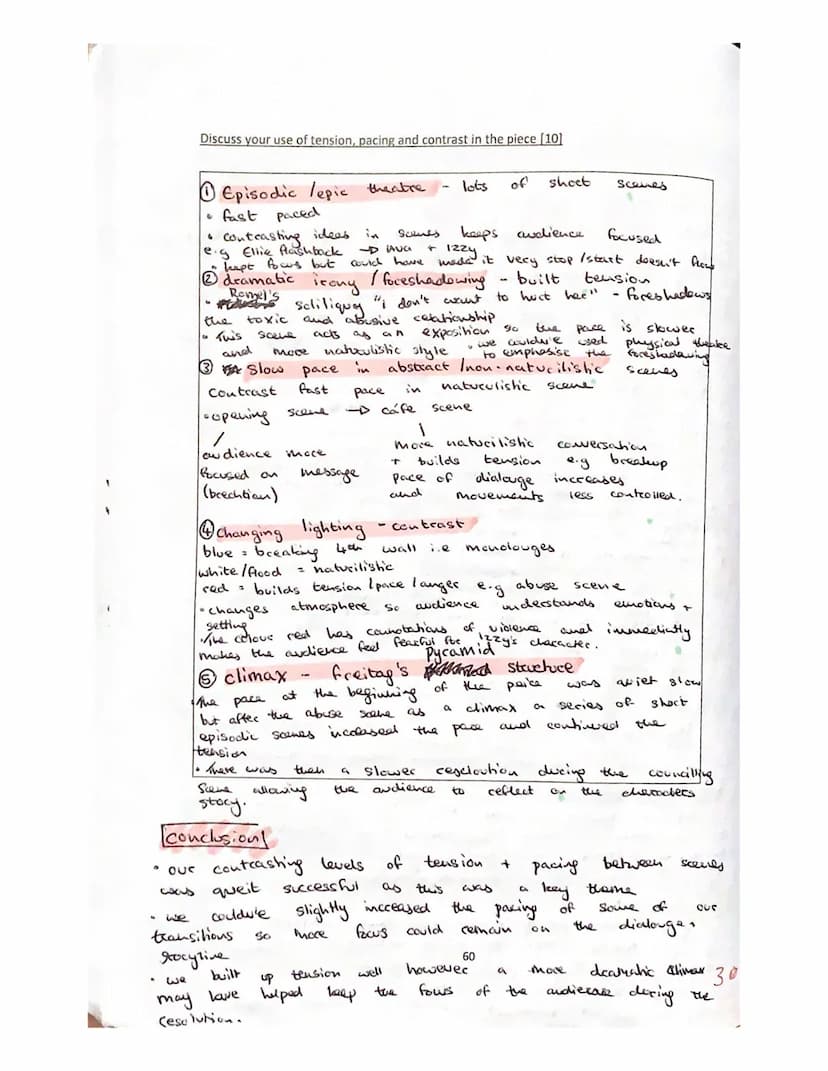 Discuss your use of tension, pacing and contrast in the piece [10]
① Episodic /epic theatre - lots of short scenes
• fast paced
• contrasting ideas in scenes keeps audience focused
e.g Ellie flashback → Ava + Izzy
• kept focus but could have made it very stop/start doesn't flow
② dramatic irony / foreshadowing - built tension
• Romel's soliliquy "I don't want to hurt her" - foreshadows
the toxic and abusive relationship
• This scene acts as an exposition so the pace is slower
and more naturalistic style • we could've used physical theatre
to emphasise the foreshadowing
③ Slow pace in abstract /non-naturilistic scenes
contrast fast pace in naturulistic scene
• opening scene → cafe scene
audience more
focused on message
(brechtian)
more naturilistic conversation
+ builds tension e.g breakup
pace of dialouge increases
and movements less controlled.
④ Changing lighting - contrast
blue = breaking 4th wall i.e monolouges
white/flood = naturilistic
red = builds tension /pace /anger e.g abuse scene
• changes atmosphere so audience understands emotions +
setting
• The colour red has connotations of violence and immediatly
makes the audience feel fearful for Izzy's character.
⑤ climax - freitag's pyramid structure
• The pace at the beginning of the peice was quiet slow
but after the abuse scene as a climax a series of short
episodic scenes increased the pace and continued the
tension
• There was then a slower resoloution during the councilling
scene allowing the audience to reflect on the characters
story.
conclusion
• our contrasting levels of tension + pacing between scenes
was queit successful as this was a key theme
• we could've slightly increased the pacing of some of our
transitions so more focus could remain on the dialouge,
storyline
60
• we built up tension well however a more dramatic climax
may have helped keep the focus of the audience during the
resolution.
30